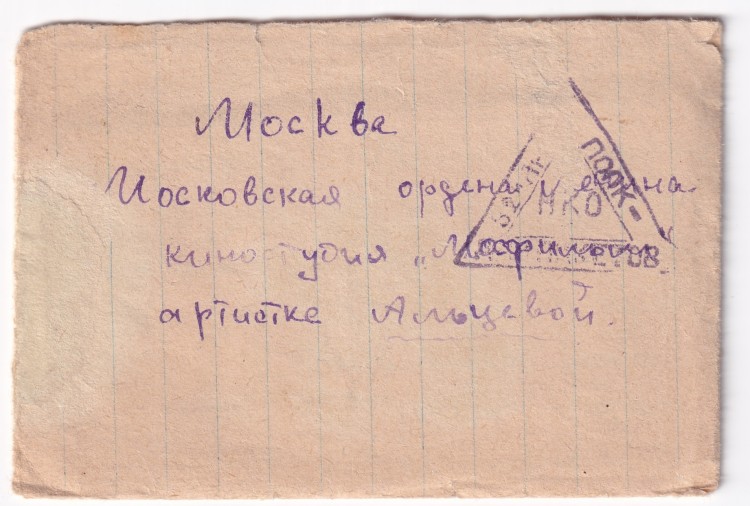 Москва
Московская ордена Ленина
киностудия „Мосфильм"
артистке Альцевой.
ПОЛК-
НКО